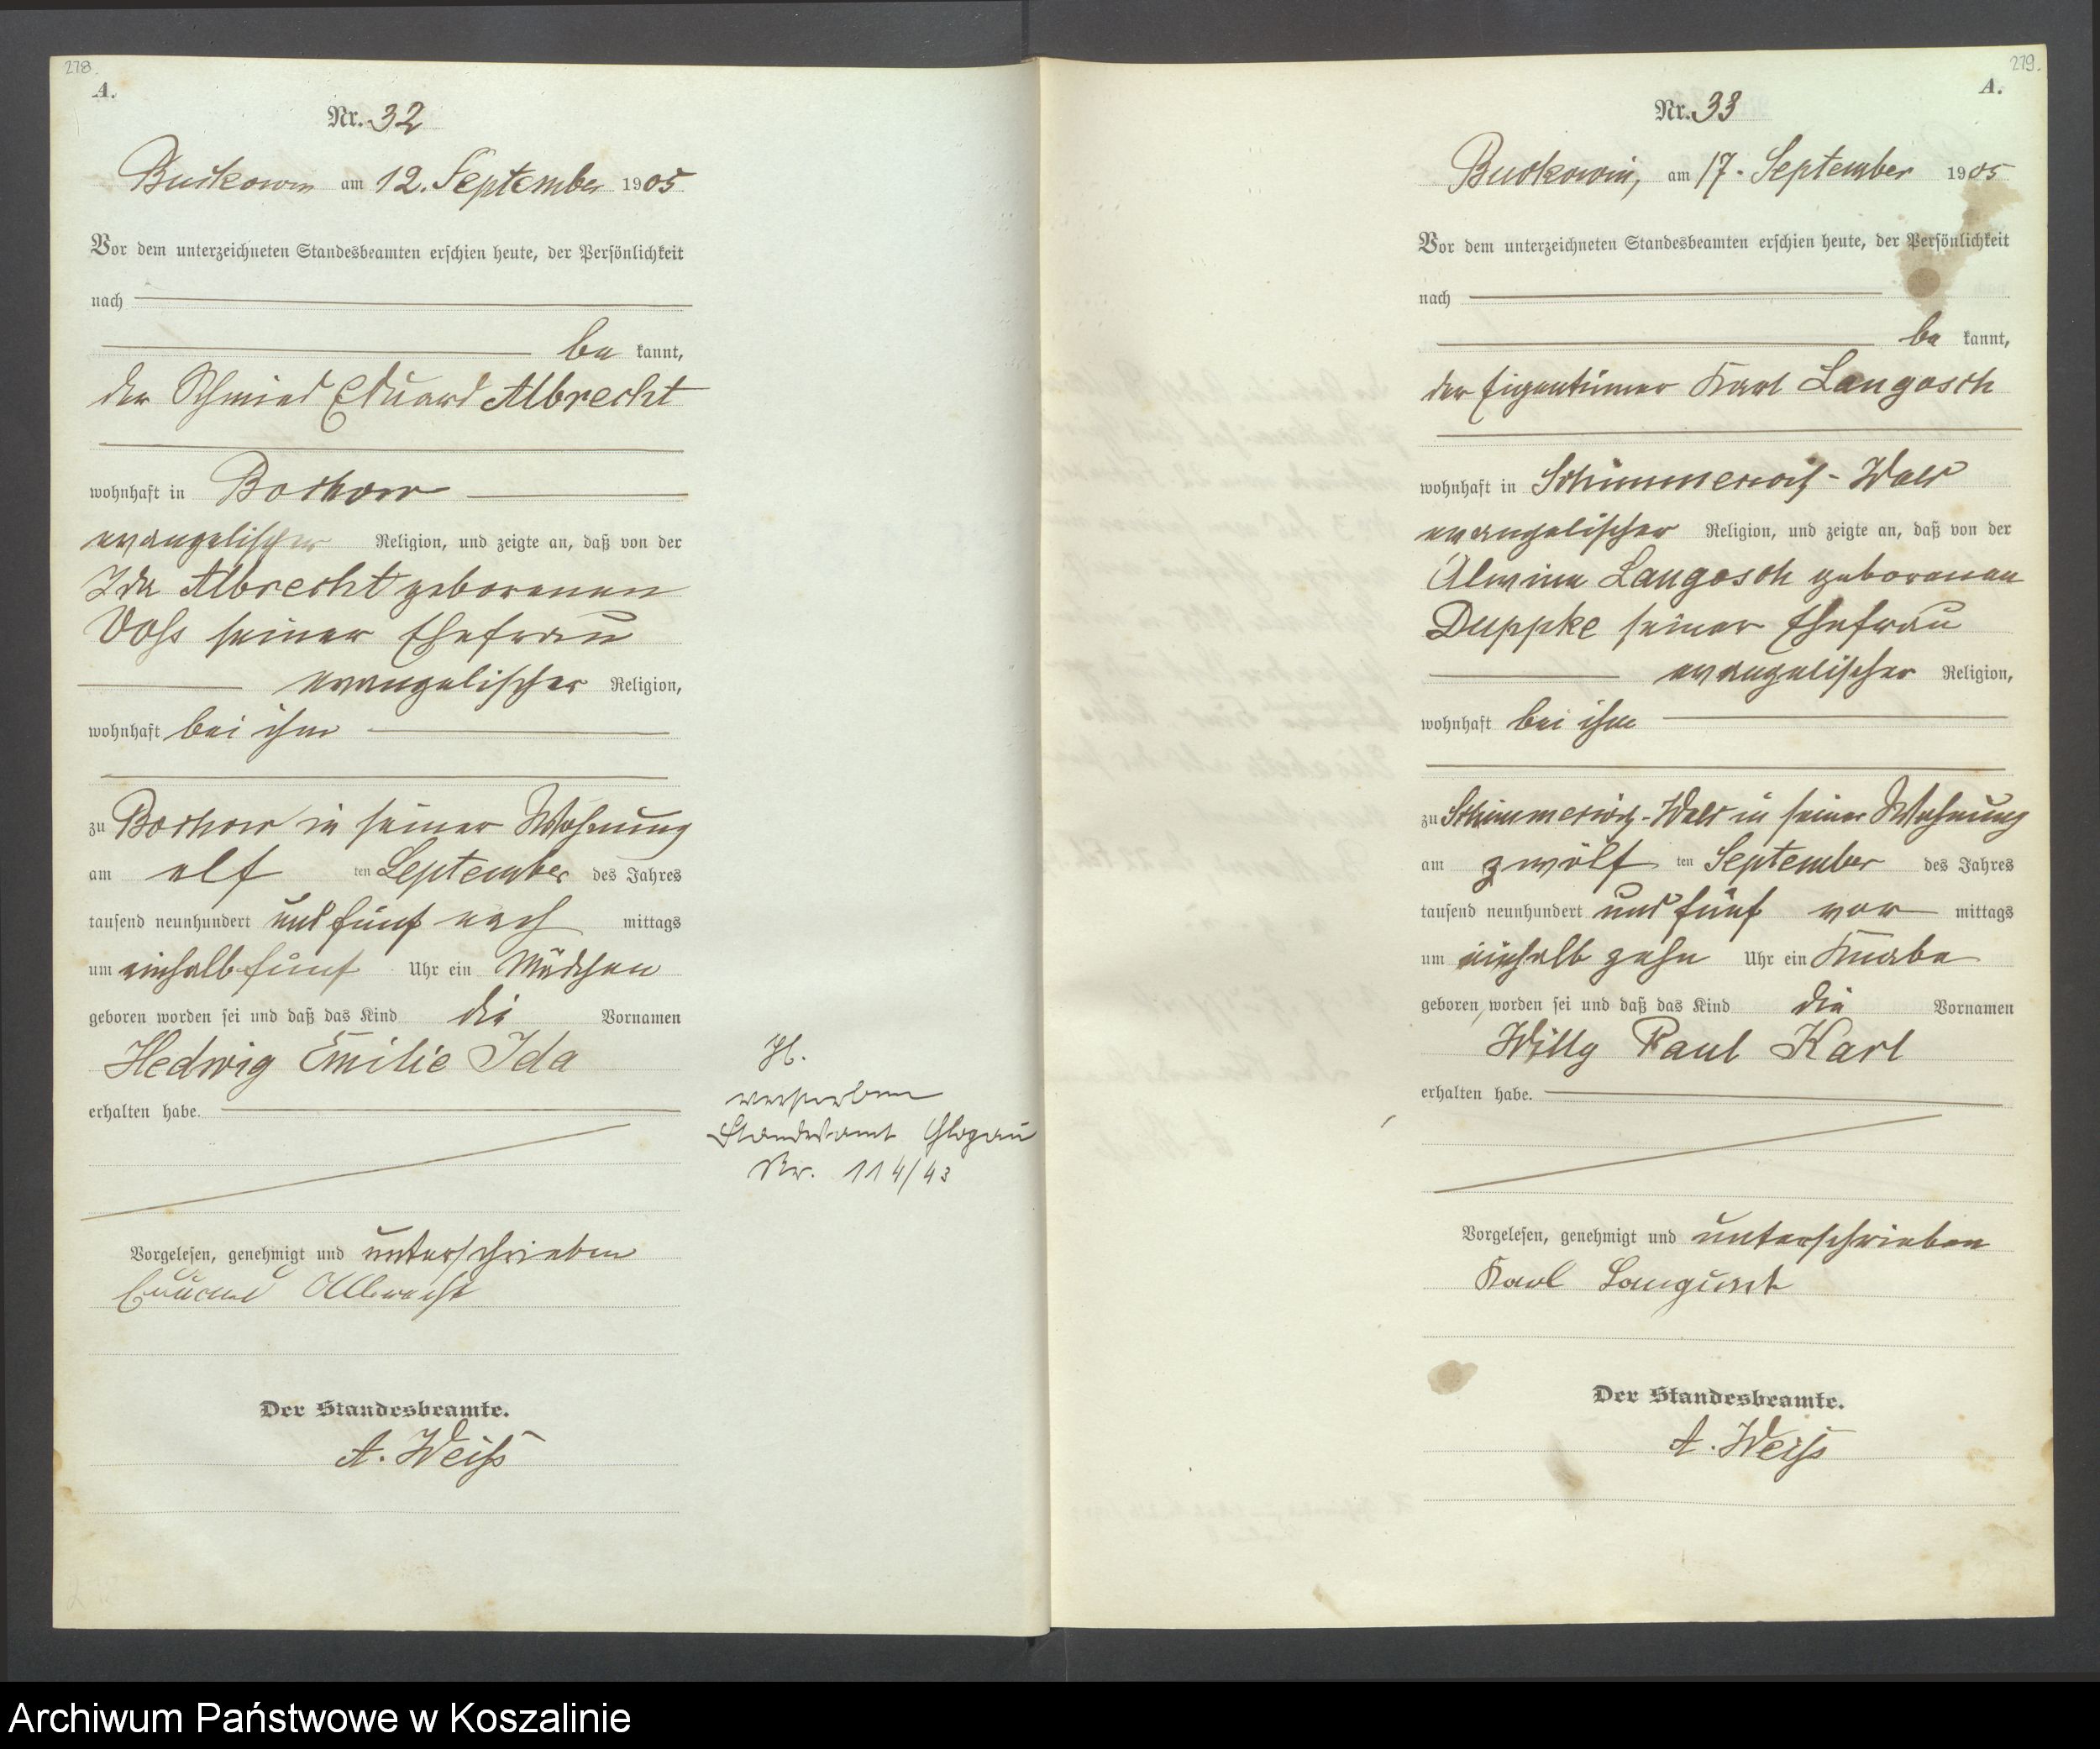 278.
A.
Nr. 32
Buckowin am 12. September 1905
Vor dem unterzeichneten Standesbeamten erschien heute, der Persönlichkeit
nach
be kannt,
der Schmied Eduard Albrecht
wohnhaft in Bochow
evangelischer Religion, und zeigte an, daß von der
Ida Albrecht geborenen
Voss seiner Ehefrau
evangelischer Religion,
wohnhaft bei ihm
zu Bochow in seiner Wohnung
am elf ten September des Jahres
tausend neunhundert und fünf nach mittags
um einhalb fünf Uhr ein Mädchen
geboren worden sei und daß das Kind die Vornamen
Hedwig Emilie Ida
erhalten habe.
Vorgelesen, genehmigt und unterschrieben
Eduard Albrecht
Der Standesbeamte.
A. Weiß
H.
verstorben
Standesamt Glogau
Nr. 114/43
279.
A.
Nr. 33
Buckowin, am 17. September 1905
Vor dem unterzeichneten Standesbeamten erschien heute, der Persönlichkeit
nach
be kannt,
der Eigentümer Karl Langosch
wohnhaft in Schimmerwitz-Wald
evangelischer Religion, und zeigte an, daß von der
Alwine Langosch geborenen
Duppke seiner Ehefrau
evangelischer Religion,
wohnhaft bei ihm
zu Schimmerwitz-Wald in seiner Wohnung
am zwölf ten September des Jahres
tausend neunhundert und fünf vor mittags
um einhalb zehn Uhr ein Knabe
geboren worden sei und daß das Kind die Vornamen
Willy Paul Karl
erhalten habe.
Vorgelesen, genehmigt und unterschrieben
Karl
Der Standesbeamte.
A. Weiß
Archiwum Państwowe w Koszalinie